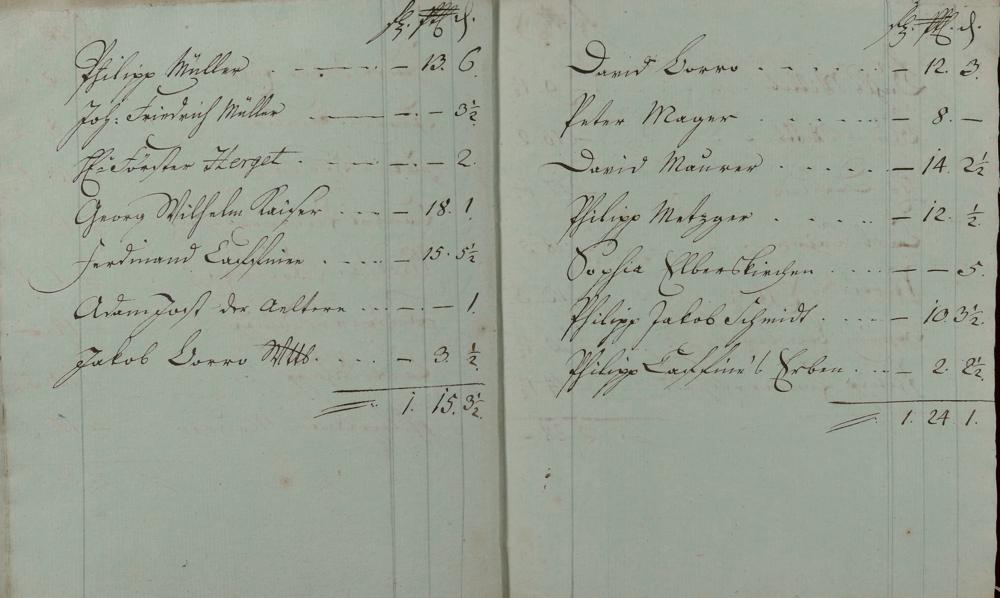 Philipp Müller - 13. 6.
Joh: Friedrich Müller - - 3½
Förster Herget - - 2.
Georg Wilhelm Kaiser - 18. 1.
Ferdinand Caffinee - 15. 5½
Adam Jost der Aeltere - - 1.
Jakob Borro Wttb. - 3. ½
1. 15. 3½
David Borro - 12. 3.
Peter Mager - 8. -
David Maurer - 14. 2½
Philipp Metzger - 12. ½
Sophia Elberskirchen - - 5.
Philipp Jakob Schmidt - 10. 3½
Philipp Caffine's Erben - 2. 2½
1. 24. 1.